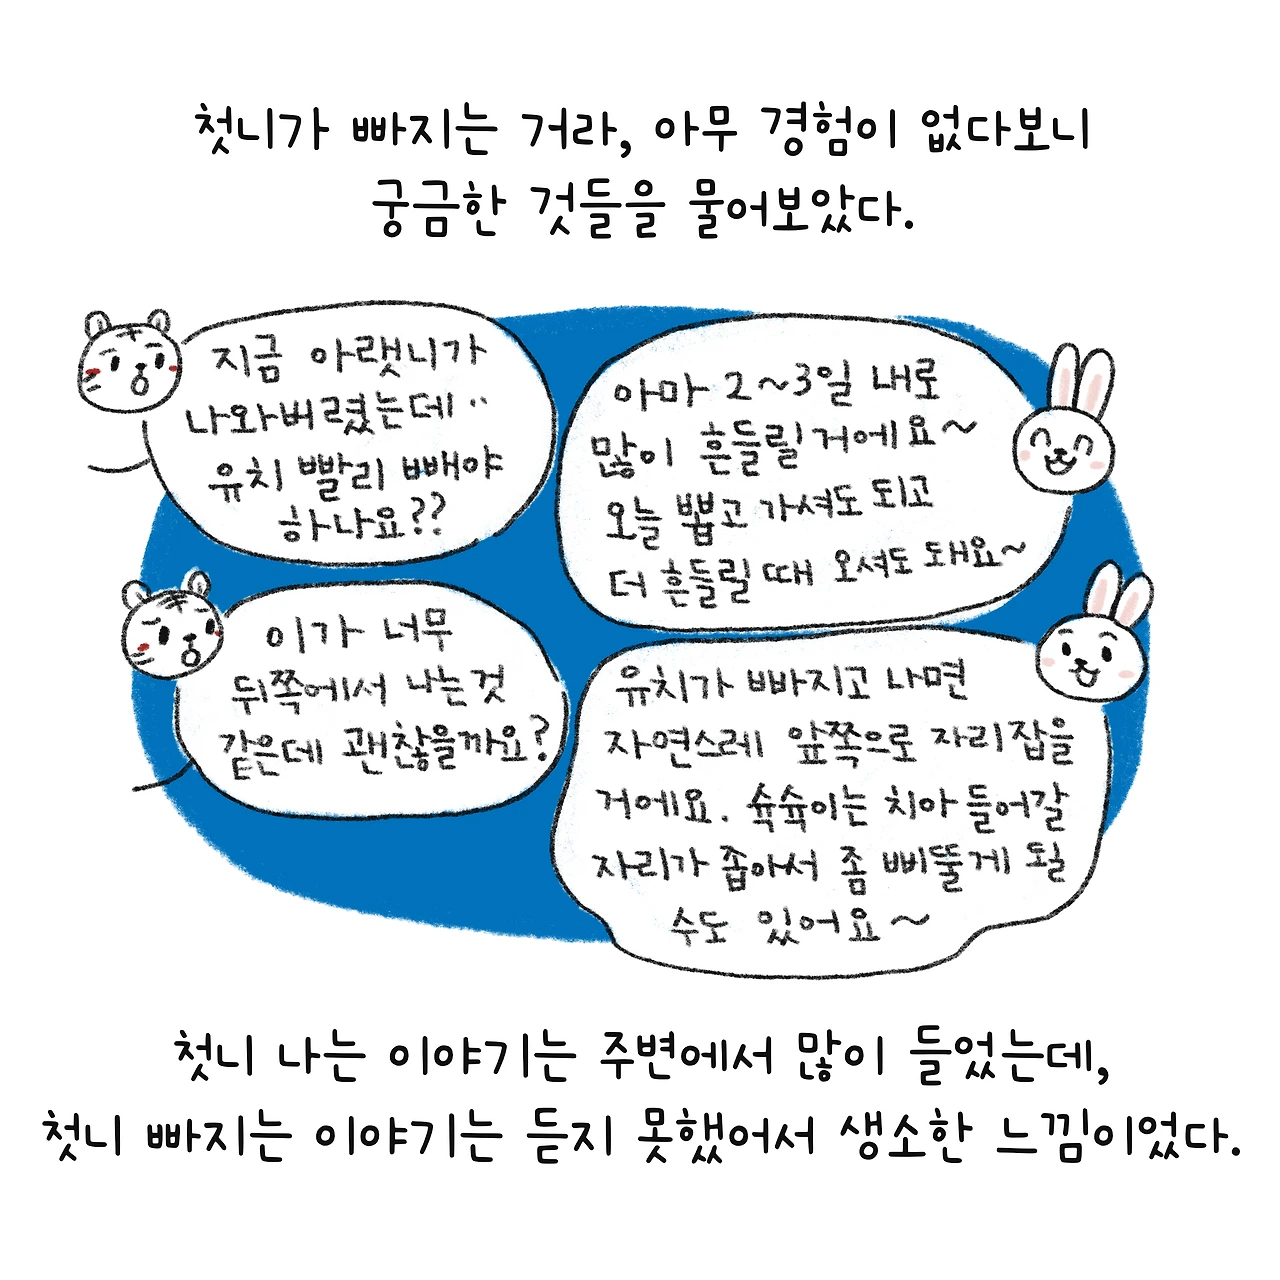 첫니가 빠지는 거라, 아무 경험이 없다보니
궁금한 것들을 물어보았다.
지금 아랫니가
나와버렸는데..
유치 빨리 빼야
하나요??
아마 2~3일 내로
많이 흔들릴거에요~
오늘 뽑고 가셔도 되고
더 흔들릴 때 오셔도 돼요~
이가 너무
뒤쪽에서 나는것
같은데 괜찮을까요?
유치가 빠지고 나면
자연스레 앞쪽으로 자리잡을
거에요. 슉슉이는 치아 들어갈
자리가 좁아서 좀 삐뚤게 될
수도 있어요~
첫니 나는 이야기는 주변에서 많이 들었는데,
첫니 빠지는 이야기는 듣지 못했어서 생소한 느낌이었다.